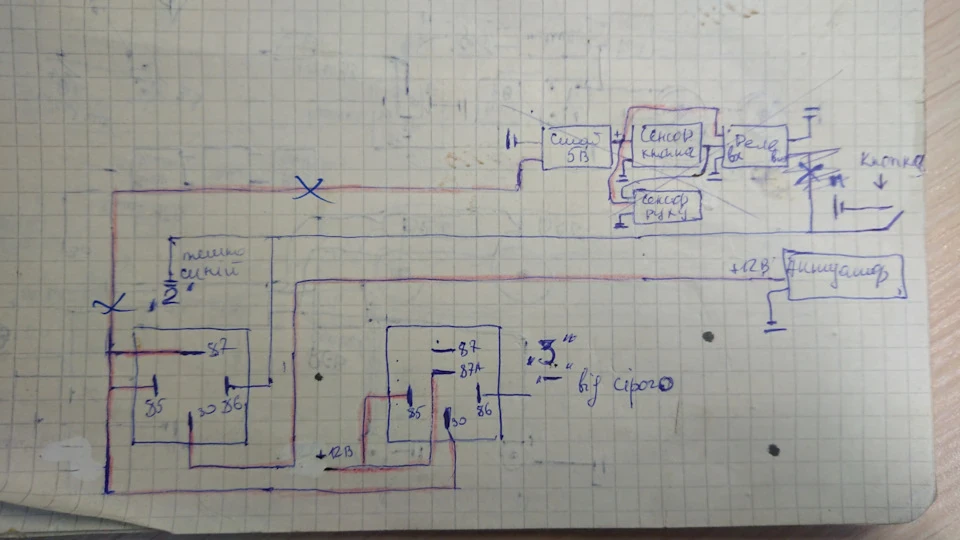 Стаб
5В
+
Сенсор
кнопка
Реле
Вх
Сенсор
Кнопка
темно
синій
"2"
+12В
Актуатор
87
85
30
86
87
87А
85
30
86
"3"
"-"
від сірого
+12В